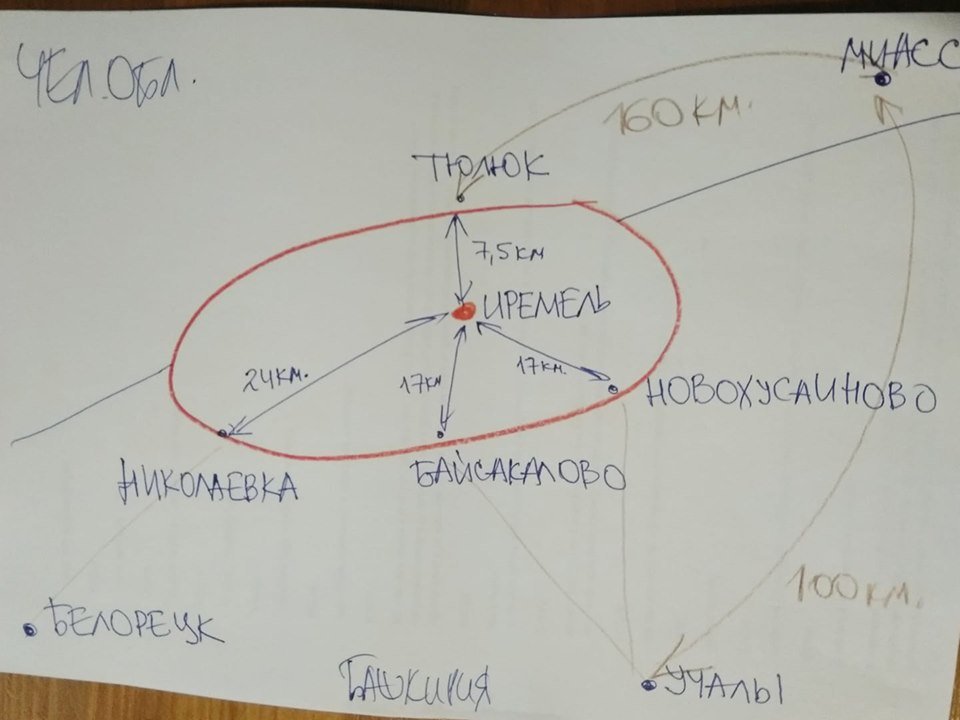 ЧЕЛ.ОБЛ.
МИАСС
160 КМ.
ТЮЛЮК
7,5 КМ
ИРЕМЕЛЬ
24 КМ.
17 КМ
17 КМ.
НОВОХУСАИНОВО
НИКОЛАЕВКА
БАЙСАКАЛОВО
100 КМ.
БЕЛОРЕЦК
БАШКИРИЯ
УЧАЛЫ